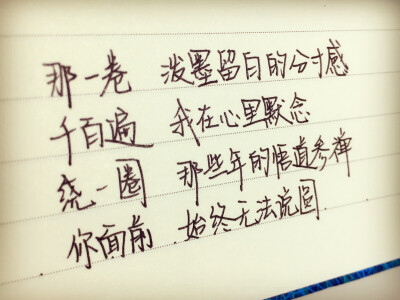 那一卷 泼墨留白的分寸感
千百遍 我在心里默念
绕一圈 那些年的悟道参禅
你面前 始终无法说圆